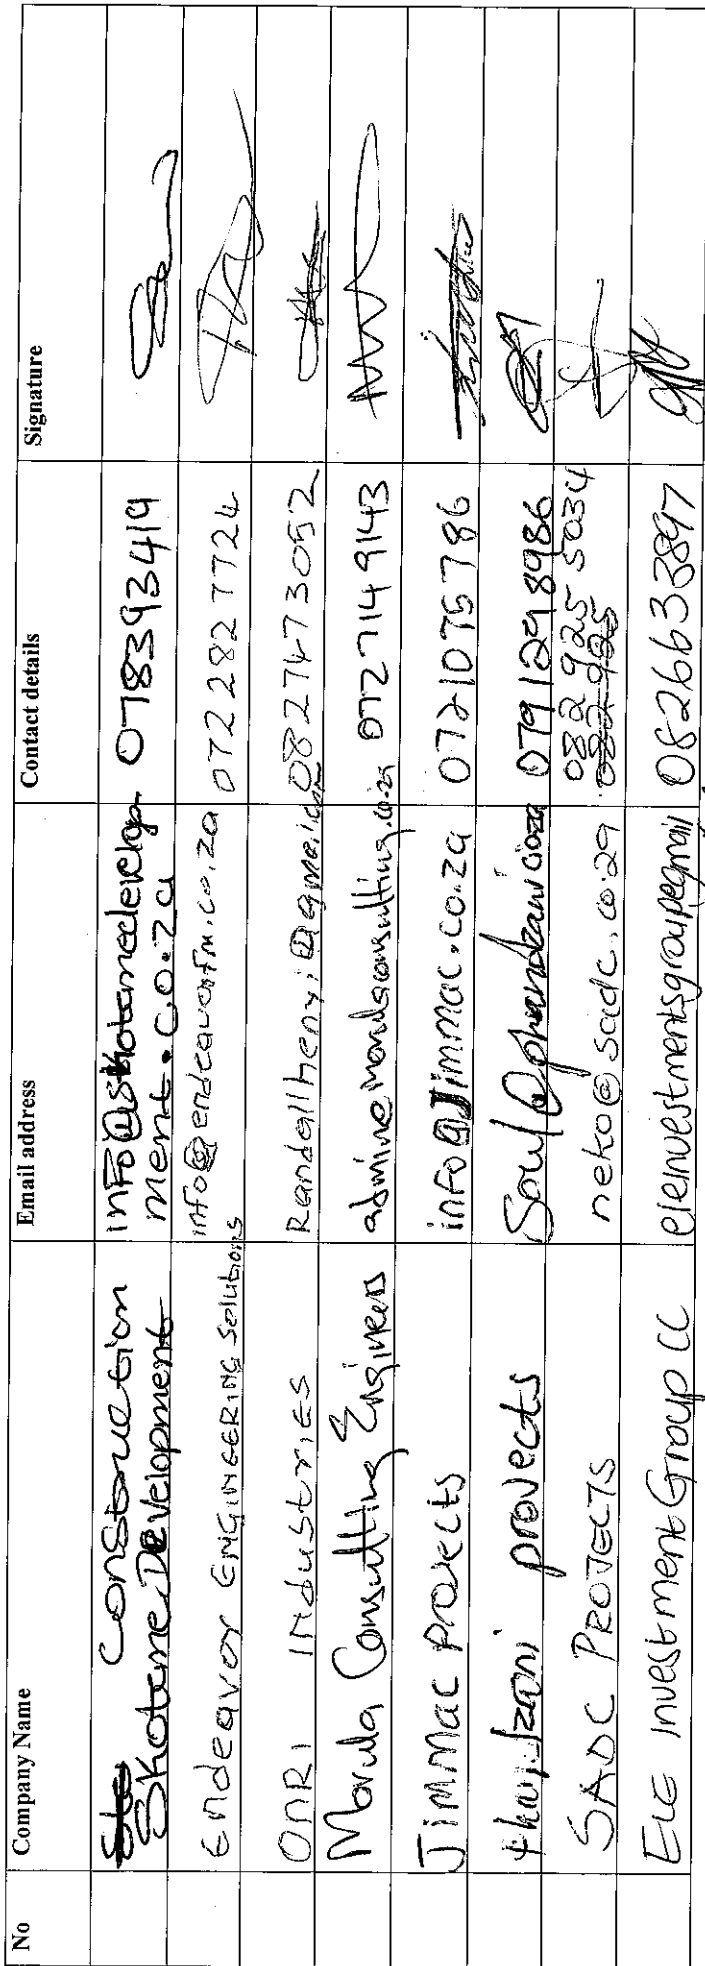 No Company Name Email address Contact details Signature
Construction
Skotame Development info@skotamedevelop 0783934119
ment.co.za
Endeavor ENGINEERING Solutions info@endeavorfm.co.za 0722827724
ONRI INDUSTRIES Randallhenxi@gmail.com 0827473052
Marula Consulting Engineers admin@marulaconsulting.co.za 0727149143
JimMac Projects info@Jimmac.co.za 0721075786
projects 0791298986
SADC PROJECTS neko@sadc.co.za 082 925 5034
082 925
ELE Investment Group CC eleinvestmentsgroup@gmail 0826633897